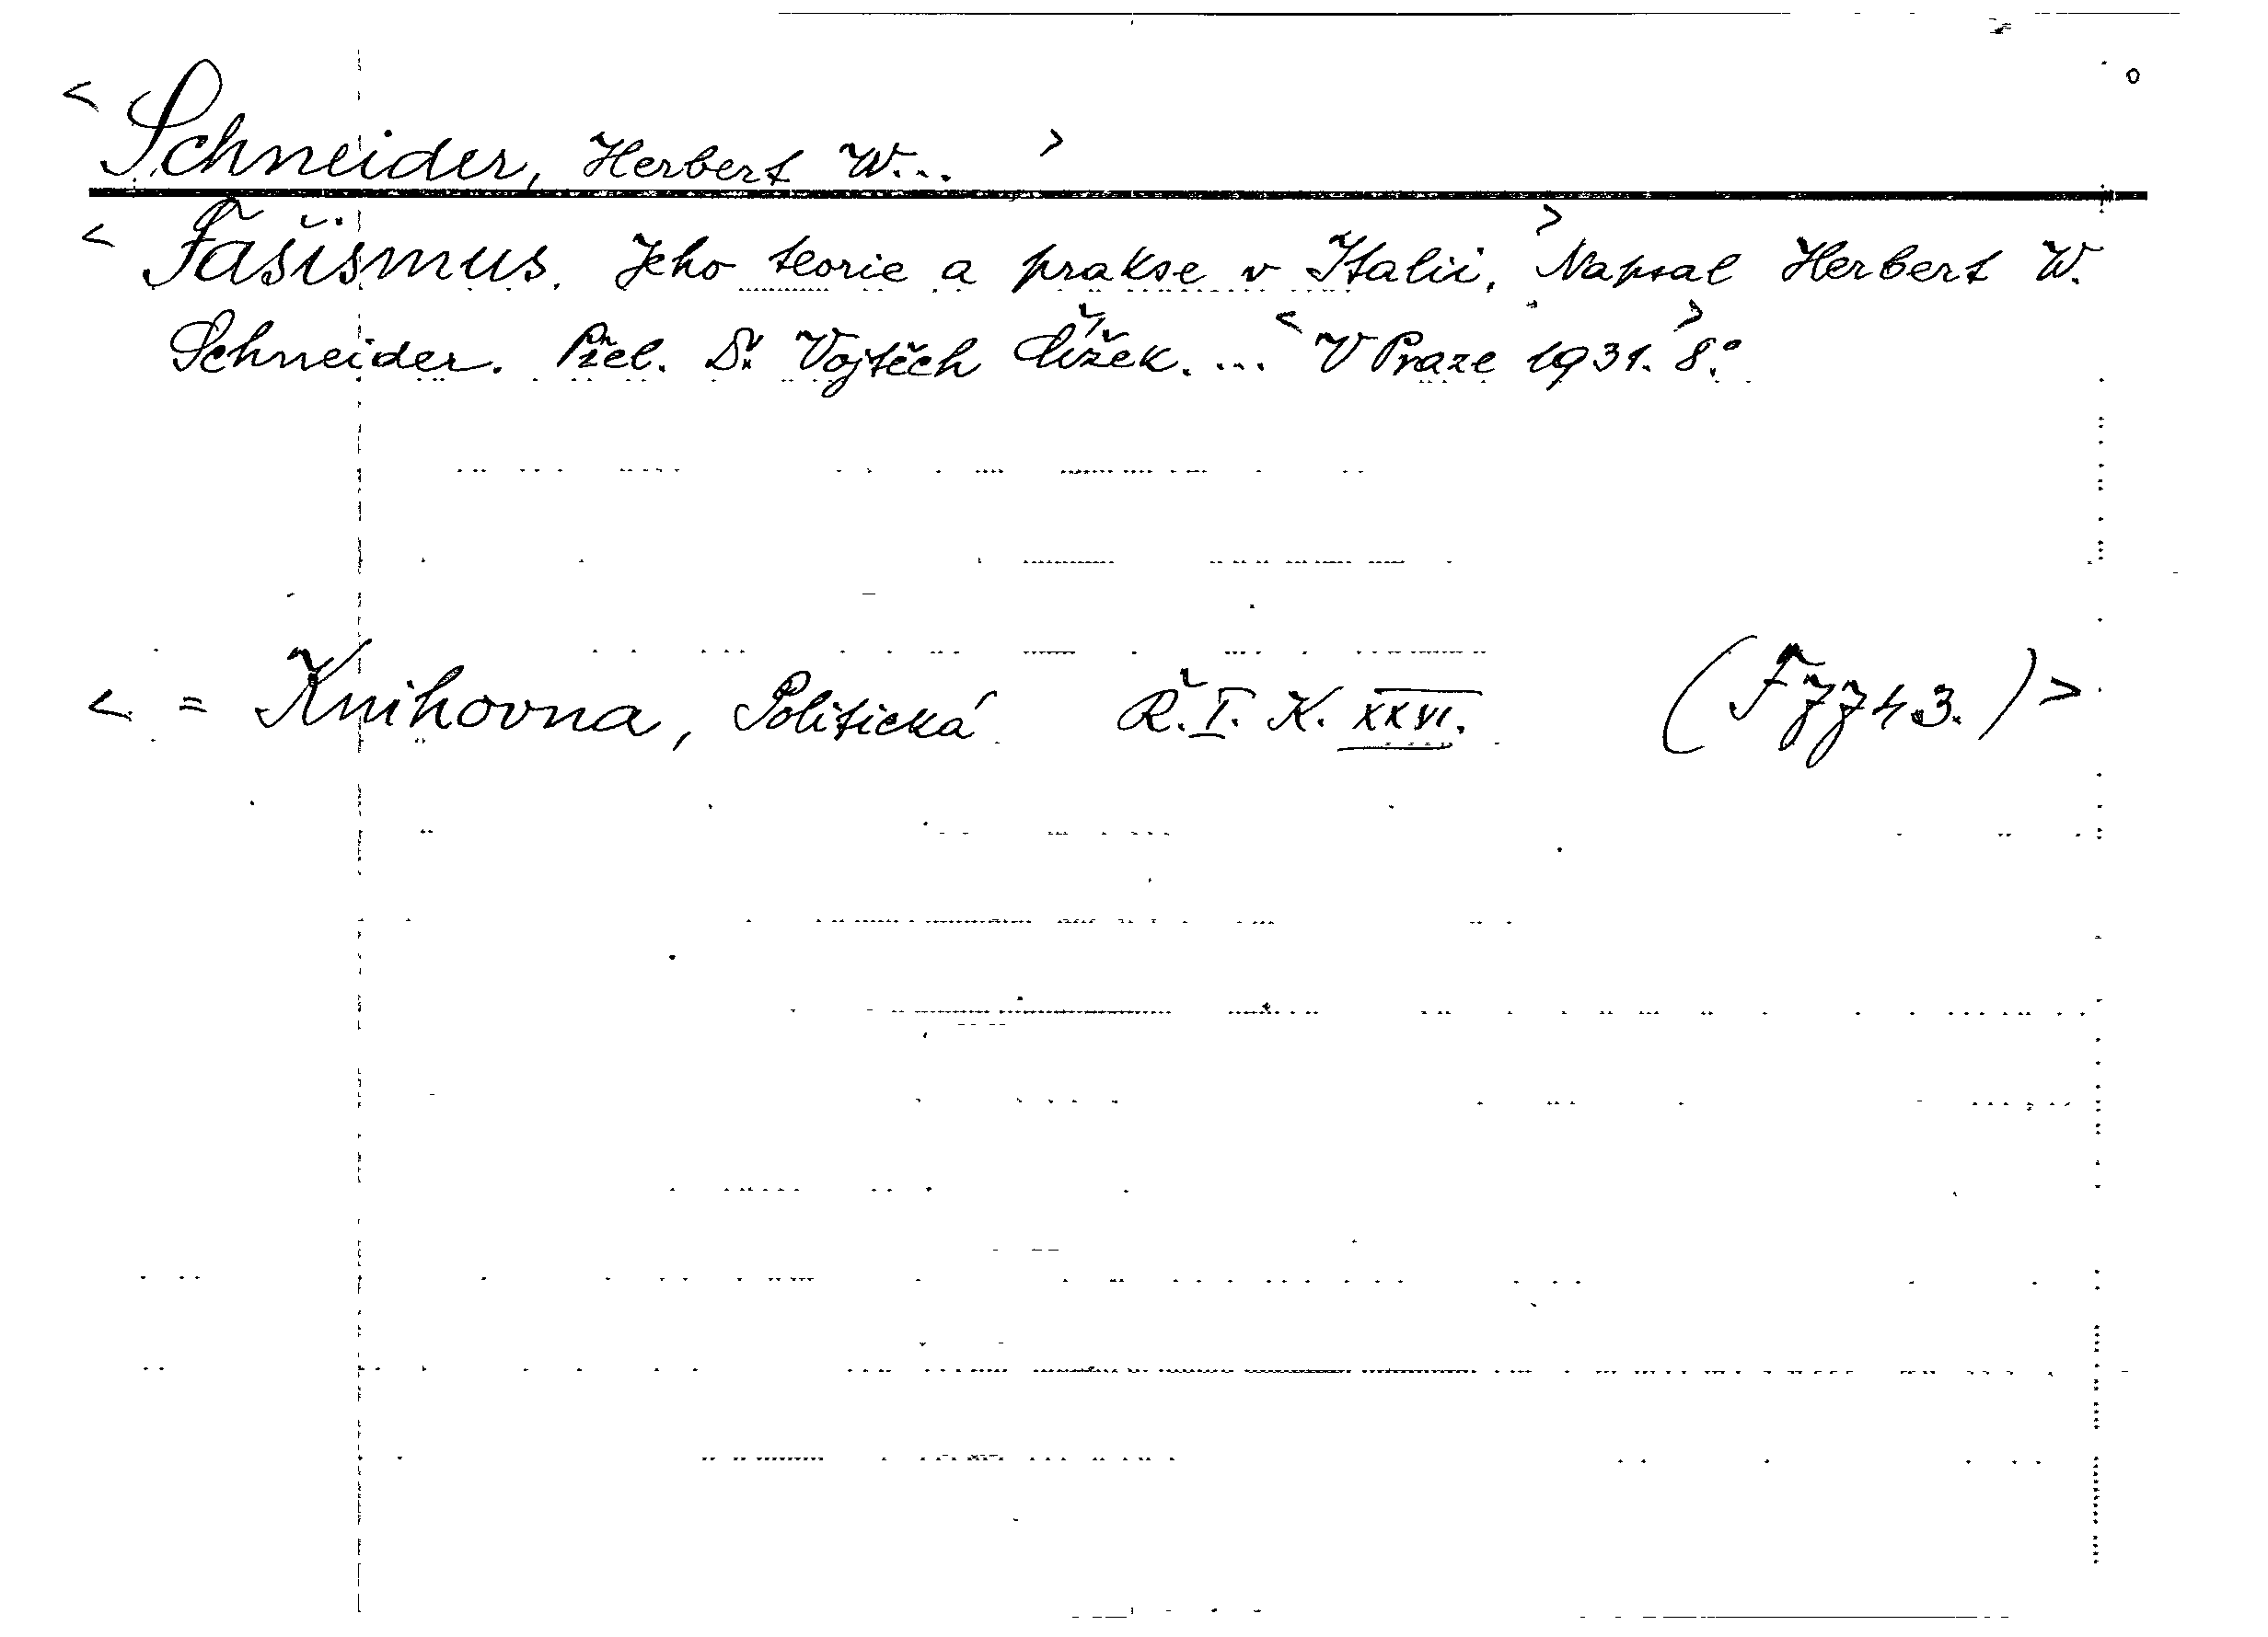 < Schneider, Herbert W... >
< Fašismus. Jeho teorie a prakse v Italii. > Napsal Herbert W.
Schneider. Přel. Dr. Vojtěch Čížek. ... < V Praze 1931. > 8.°
< = Knihovna, Politická Ř. I. K. XXVI. (F 7743.) >